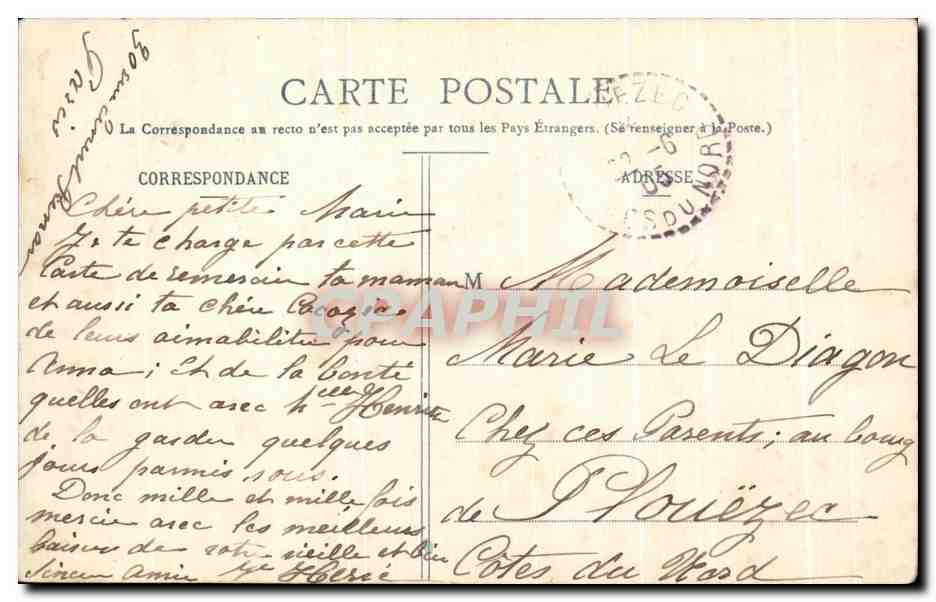 CARTE POSTALE
La Correspondance au recto n'est pas acceptée par tous les Pays Étrangers. (Se renseigner à la Poste.)
CORRESPONDANCE
ADRESSE
EZEC
-6
05
DU NORD
Chère petite Marie
Je te charge par cette
Carte de remercier ta maman
et aussi ta chère
de leurs aimabilités pour
Anna; Et de la bonté
quelles ont avec Henriette
de la garder quelques
jours parmis vous.
Donc mille et mille fois
mercie avec les meilleurs
baisers de votre vieille et bien
Sincer Amie Hervé
M Mademoiselle
Marie Le Diagon
Chez ces Parents; au bourg
de Plouëzec
Côtes du Nord
CPAPHIL